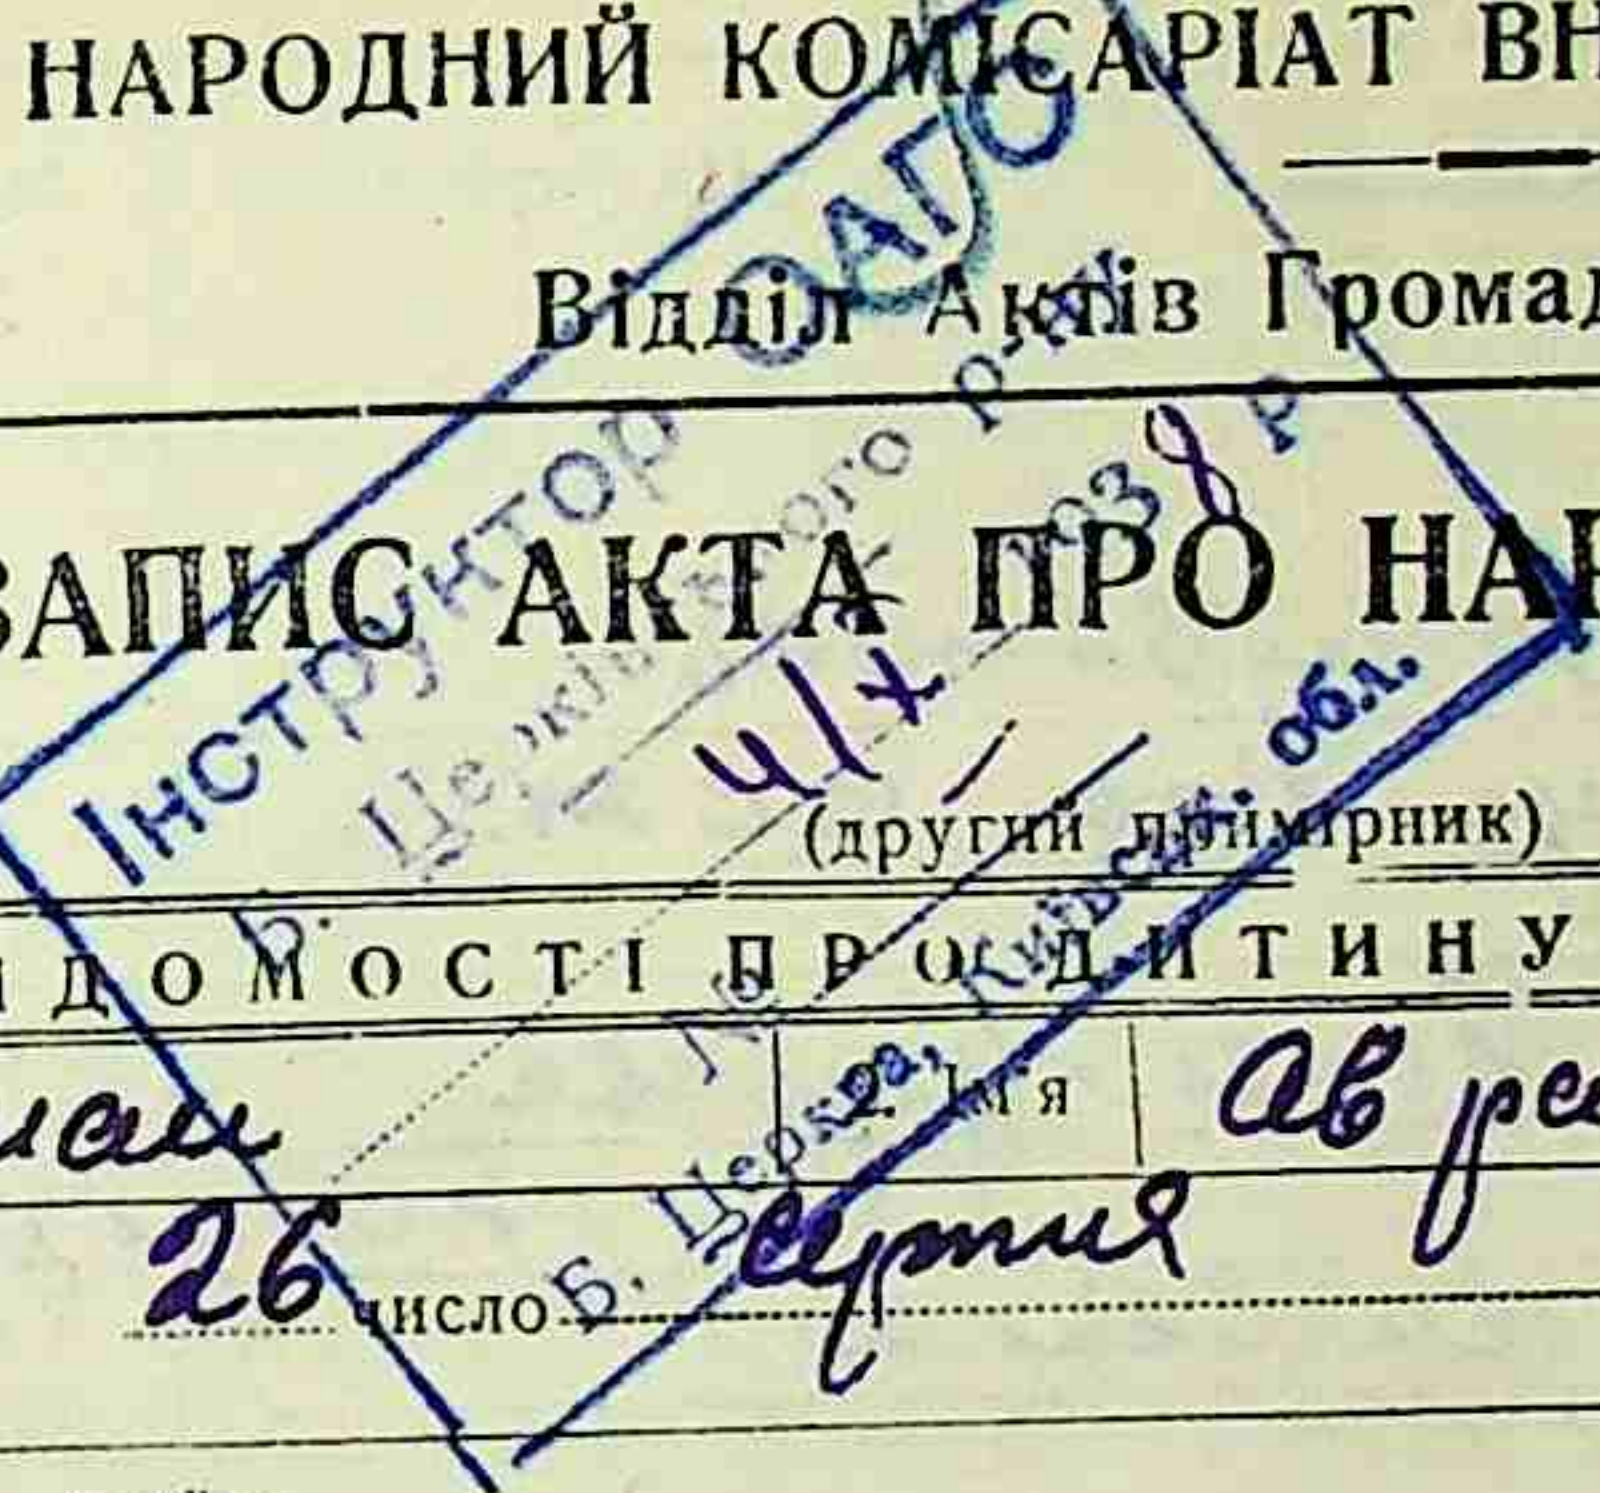 НАРОДНИЙ КОМІСАРІАТ ВН
Відділ Актів Громад
ЗАПИС АКТА ПРО НАР
(другий примірник)
ІДОМОСТІ ПРО ДИТИНУ
2. Ім'я Авра
26 число серпня
Інструктор ОАГС
р-ну
4/X 1938 р.
№
Б. Церква, Київськ. обл.